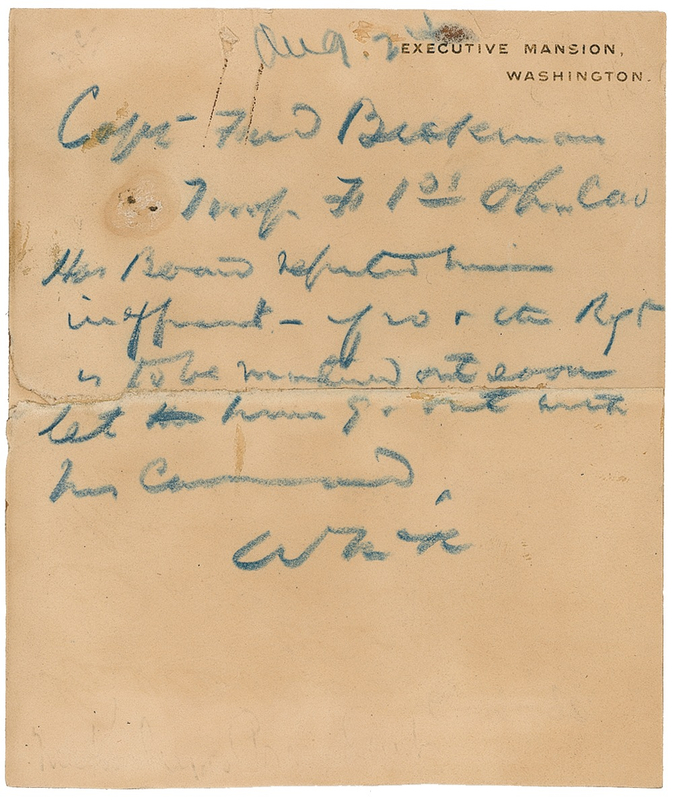 Aug. 2nd
EXECUTIVE MANSION,
WASHINGTON.
Capt Fred Beekman
Troop F 1st Ohio Cav
His Board reported him
inefficient - if so & the Rgt
is to be mustered out soon
let him go out with
his Command